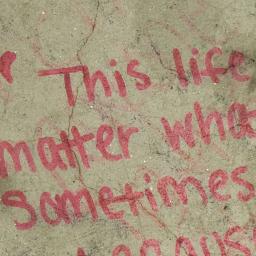 This life
matter wha
sometimes